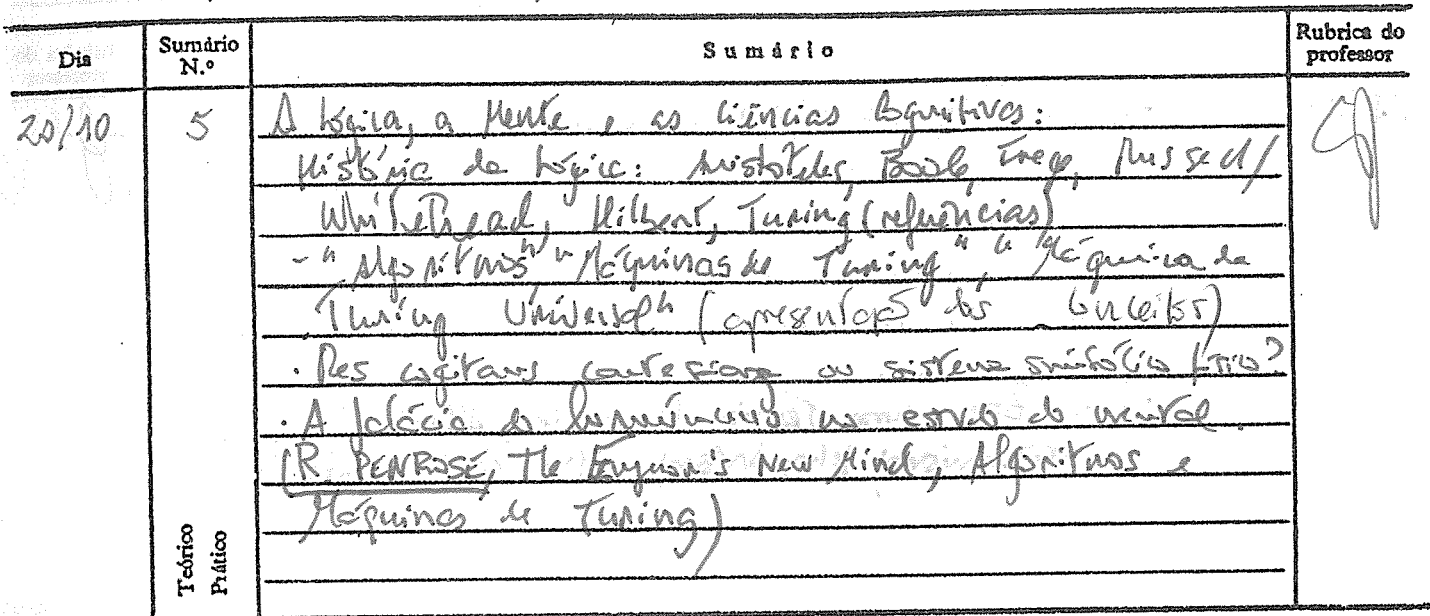 Dia
Sumário N.º
Sumário
Rubrica do professor
20/10
5
A Lógica, a Mente e as Ciências Cognitivas:
História da Lógica: Aristóteles, Boole, Frege, Russell/
Whitehead, Hilbert, Turing (referências)
- "Algoritmos" "Máquinas de Turing", "Máquina de
Turing Universal" (apresentação dos conceitos)
. Res cogitans cartesiana ou sistema simbólico físico?
. A falácia do homúnculo no estudo do mental.
(R. PENROSE, The Emperor's New Mind, Algoritmos e
Máquinas de Turing)
Teórico
Prático